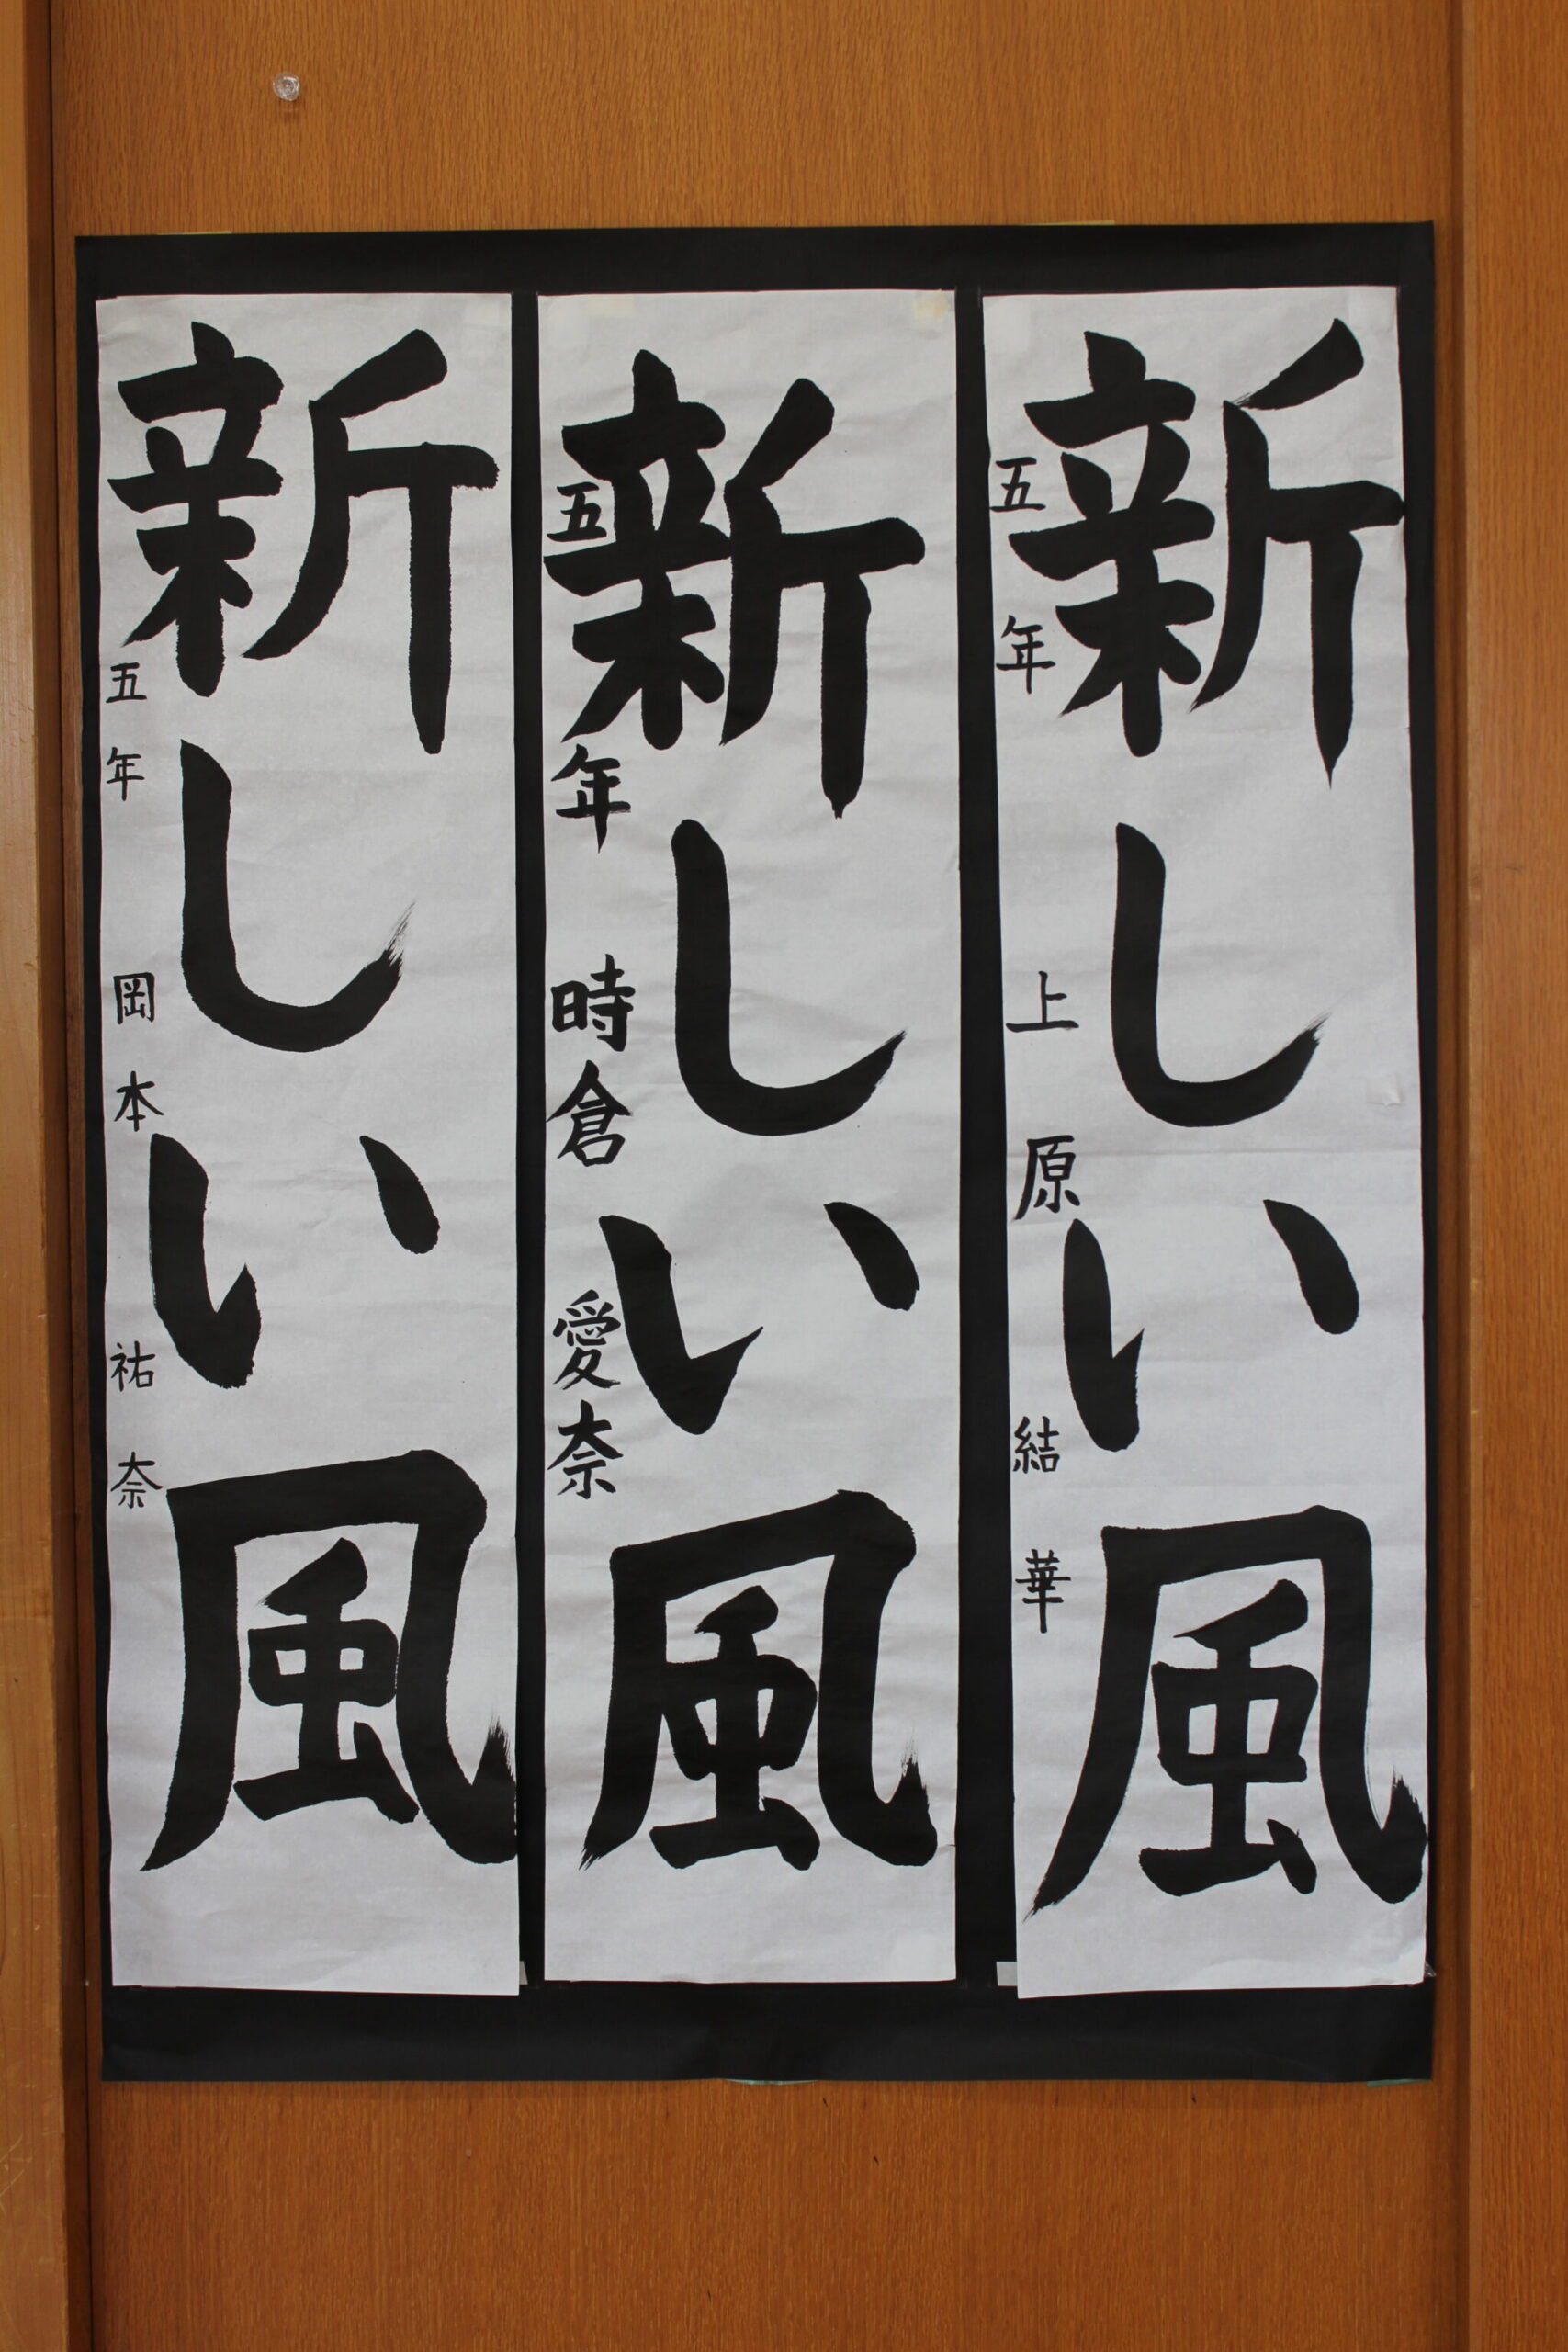 新しい風
五年 上原 結華
新しい風
五年 時倉 愛奈
新しい風
五年 岡本 祐奈